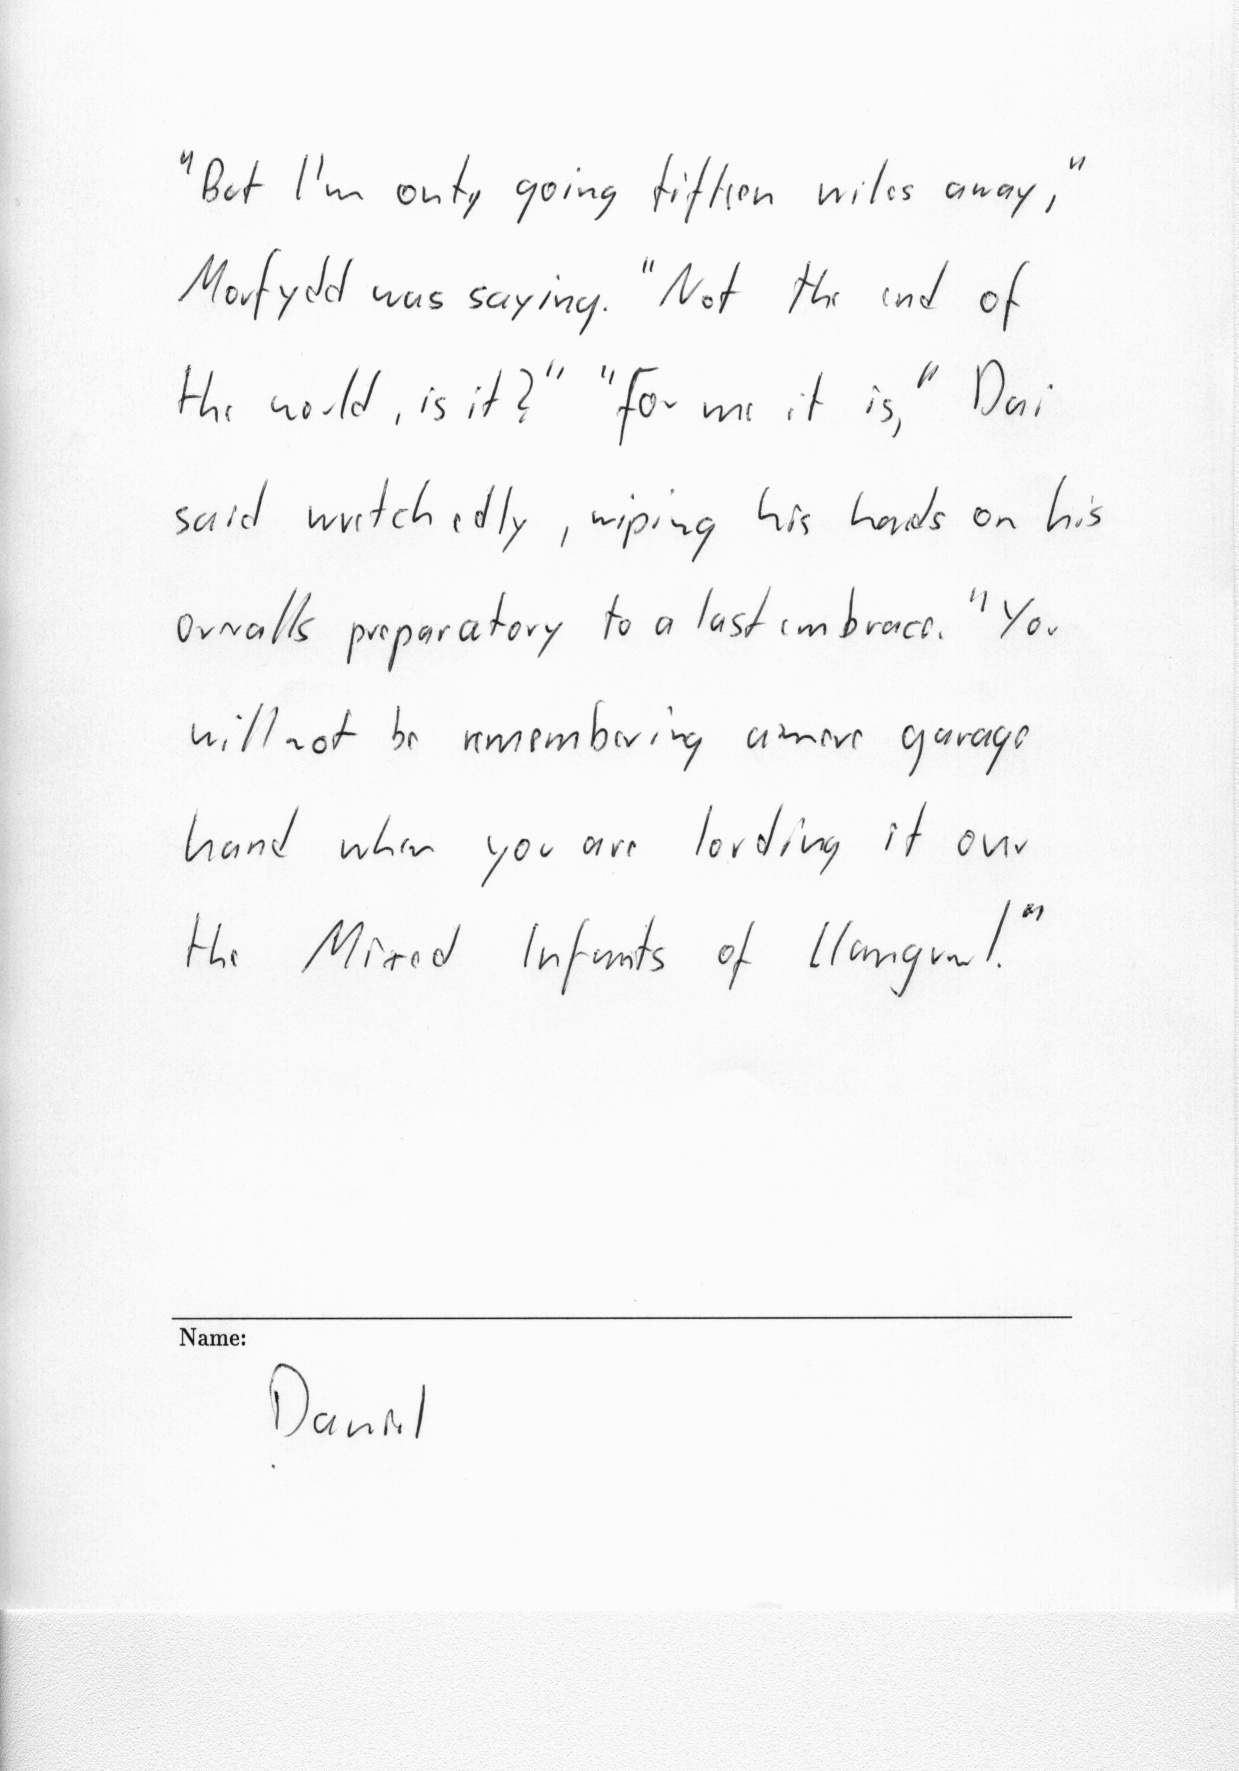 "But I'm only going fifteen miles away,"
Morfydd was saying. "Not the end of
the world, is it?" "For me it is," Dai
said wretchedly, wiping his hands on his
overalls preparatory to a last embrace. "You
will not be remembering a mere garage
hand when you are lording it over
the Mixed Infants of
Name:
Daniel